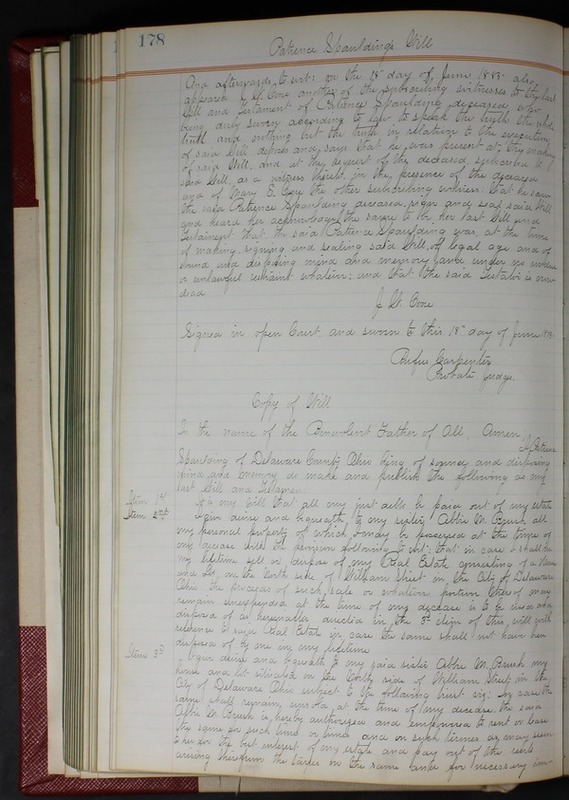 178
Patience Spaulding's Will
And afterwards, to wit: on the 18" day of June, 1883 also
appeared J. W. Cone another of the subscribing witnesses to the last
Will and Testament of Patience Spaulding, deceased, who
being duly sworn according to law to speak the truth the whole
truth and nothing but the truth in relation to the execution
of said Will deposes and says that he was present at the making
of said Will, and at the request of the deceased subscribed to
said Will, as a witness thereto in the presence of the deceased
and of Mary E. the other subscribing witness: that he saw
the said Patience Spaulding deceased, sign and seal said Will
and heard her acknowledge the same to be her last Will and
Testament that the said Patience Spaulding was, at the time
of making, signing and sealing said Will, of legal age and of
sound and disposing mind and memory, and under no undue
or unlawful restraint whatever; and that the said Testatrix is now
dead
J. W. Cone
Signed in open Court and sworn to this 18" day of June
Rufus Carpenter
Probate Judge.
Copy of Will
In the name of the Benevolent Father of All, Amen.
I Patience
Spaulding of Delaware County Ohio being of sound and disposing
mind and memory do make and publish the following as my
last Will and Testament
Item 1st It is my Will that all my just debts be paid out of my estate
Item 2nd I give devise and bequeath to my sister Abbie M. Brush all
my personal property of which I may be possessed at the time of
my decease with the provision following to wit: that in case I shall in
my lifetime sell or dispose of my Real Estate consisting of a House
and Lot on the North side of William Street in the City of Delaware
Ohio the proceeds of such sale or whatever portion thereof may
remain unexpended at the time of my decease is to be used and
disposed of as hereinafter directed in the 3rd item of this will with
reference to said Real Estate in case the same shall not have been
disposed of by me in my lifetime
Item 3rd I give devise and bequeath to my said sister Abbie M. Brush my
house and lot situated on the North side of William Street in the
City of Delaware Ohio subject to the following trust viz: in case the
same shall remain unsold at the time of my decease the said
Abbie M. Brush is hereby authorized and empowered to rent or lease
the same for such time or times and on such terms as may seem
to her for the best interest of my estate and pay out of the rents
arising therefrom the taxes on the same and for necessary im-